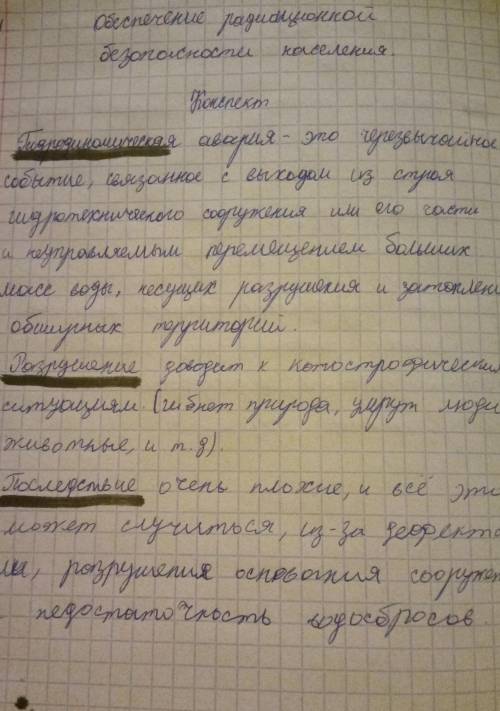 Обеспечение радиационной
безопасности населения.
Конспект
Гидродиномическая авария - это черезвычайное
событие, связанное с выходом из строя
гидротехнического сооружения или его части
и неуправляемым перемещением больших
масс воды, несущих разрушения и затоплени
обширных территорий.
Разрушение заводит к катострофически
ситуациям (гибнет природа, умрут люди
животные, и т.д).
Последствие очень плохие, и всё эти
может случиться, из-за дефекта
разрушения основания сооружен
недостаточность водосбросов.